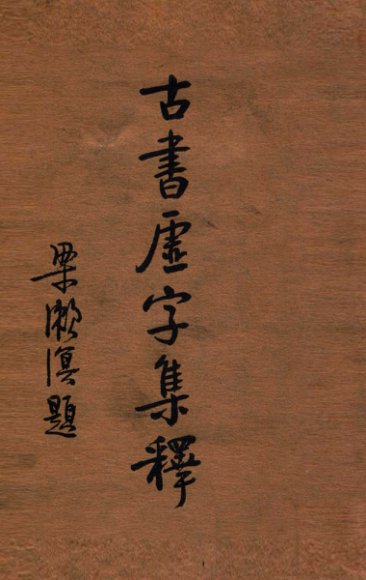 古書虛字集釋
梁漱溟題